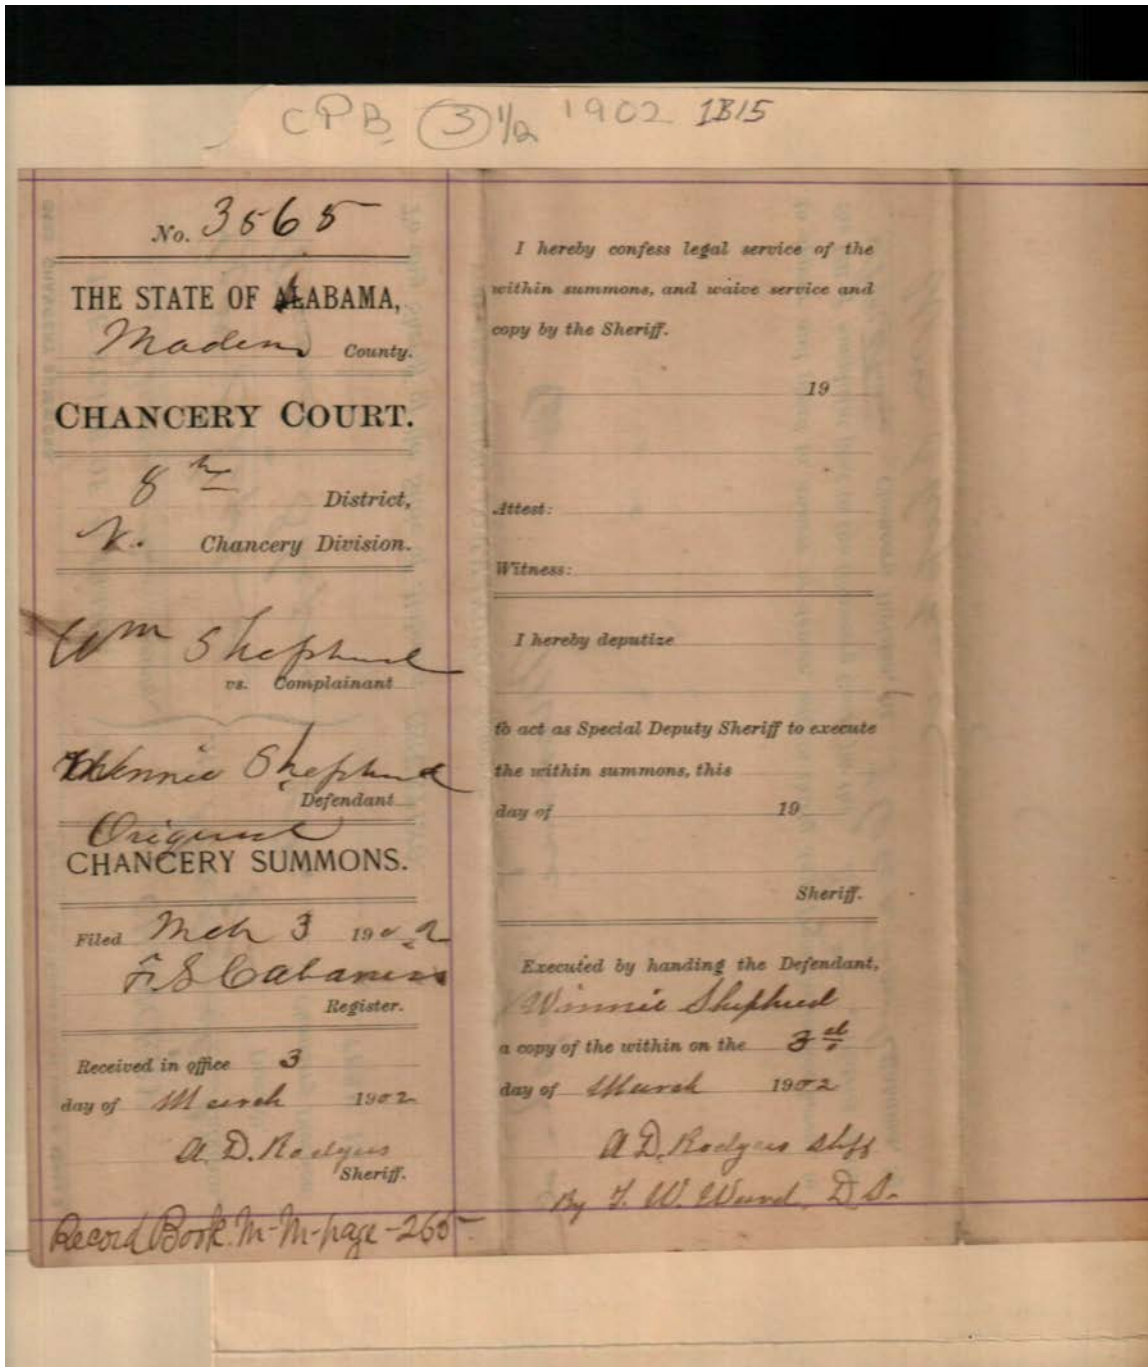 CPB 3 1/2 1902 1B15
No. 3565
THE STATE OF ALABAMA,
Madison County.
CHANCERY COURT.
8th District,
N. Chancery Division.
Wm Shepherd
vs. Complainant
Winnie Shepherd
Defendant
Original
CHANCERY SUMMONS.
Filed Mch 3 1902
F. S. Cabaniss
Register.
Received in office 3
day of March 1902
A. D. Rodgers
Sheriff.
Record Book M-M-page-265-
I hereby confess legal service of the
within summons, and waive service and
copy by the Sheriff.
19
Attest:
Witness:
I hereby deputize
to act as Special Deputy Sheriff to execute
the within summons, this
day of 19
Sheriff.
Executed by handing the Defendant,
Winnie Shepherd
a copy of the within on the 3rd
day of March 1902
A. D. Rodgers Shff
By W. D. S.